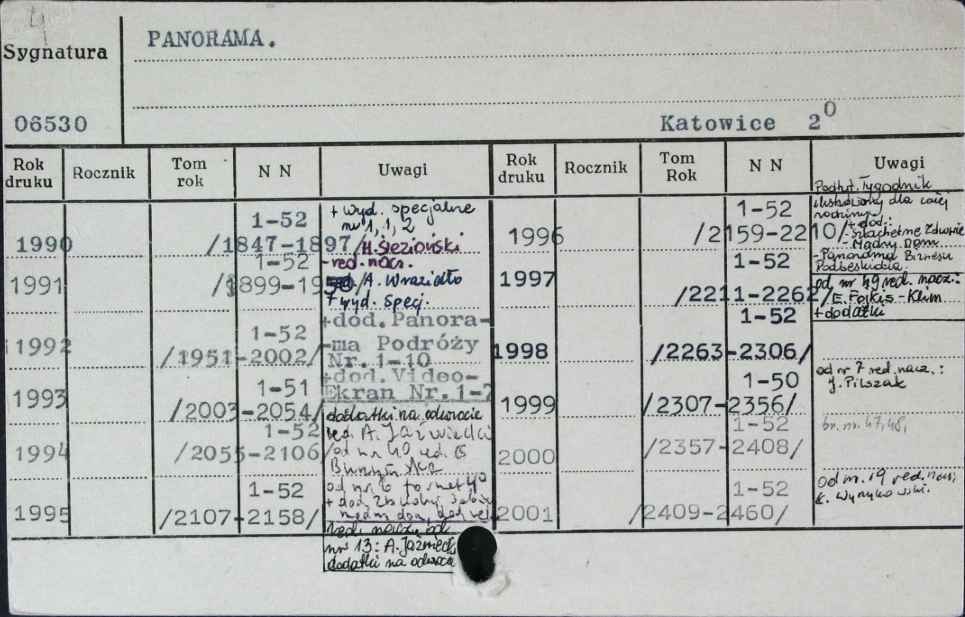 4
Sygnatura
PANORAMA.
06530
Katowice 2⁰
Rok druku Rocznik Tom rok N N Uwagi
1990 1-52 /1847-1897/ + wyd. specjalne
nr 1, 1, 2
H. Ślezioński
red. nacz.
1991 1-52 /1899-1950/ A. Wrazidło
7 wyd. spec.
1992 1-52 /1951-2002/ +dod. Panora-
ma Podróży
Nr. 1-10
1993 1-51 /2003-2054/ +dod. Video-
Ekran Nr. 1-7
dodatki na odwrocie
1994 1-52 /2055-2106/ red. A.
od nr 40 red. B
od nr 6
+ dod.
1995 1-52 /2107-2158/
red. nacz. od
nr 13: A. Jaźwiecki
dodatki na odwrocie
Rok druku Rocznik Tom Rok N N Uwagi
1996 1-52 /2159-2210/ Podtyt. Tygodnik
ilustrowany dla całej
rodziny
+ dod.:
- Szlachetne Zdrowie
- Mądry Dom
- Panorama Biznesu
Podbeskidzia
1997 1-52 /2211-2262/ od nr 49 red. nacz.:
E. Fojkis-Klim
+ dodatki
1998 1-52 /2263-2306/
1999 1-50 /2307-2356/ od nr 7 red. nacz.:
J. Pilszak
2000 1-52 /2357-2408/ br. nr. 47, 48,
2001 1-52 /2409-2460/ od nr. 19 red. nacz.